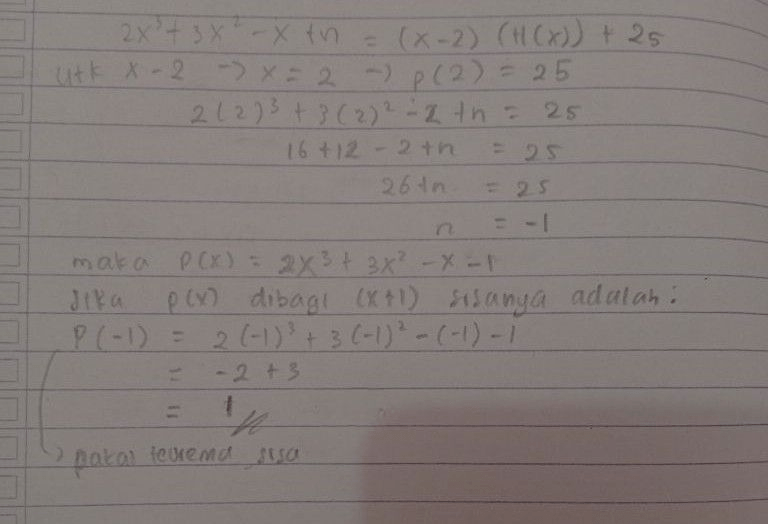 2x³ + 3x² - x + n = (x-2) (H(x)) + 25
utk x - 2 -> x = 2 -> p(2) = 25
2(2)³ + 3(2)² - 2 + n = 25
16 + 12 - 2 + n = 25
26 + n = 25
n = -1
maka P(x) = 2x³ + 3x² - x - 1
Jika p(x) dibagi (x+1) sisanya adalah :
P(-1) = 2(-1)³ + 3(-1)² - (-1) - 1
= -2 + 3
= 1
-> pakai teorema sisa